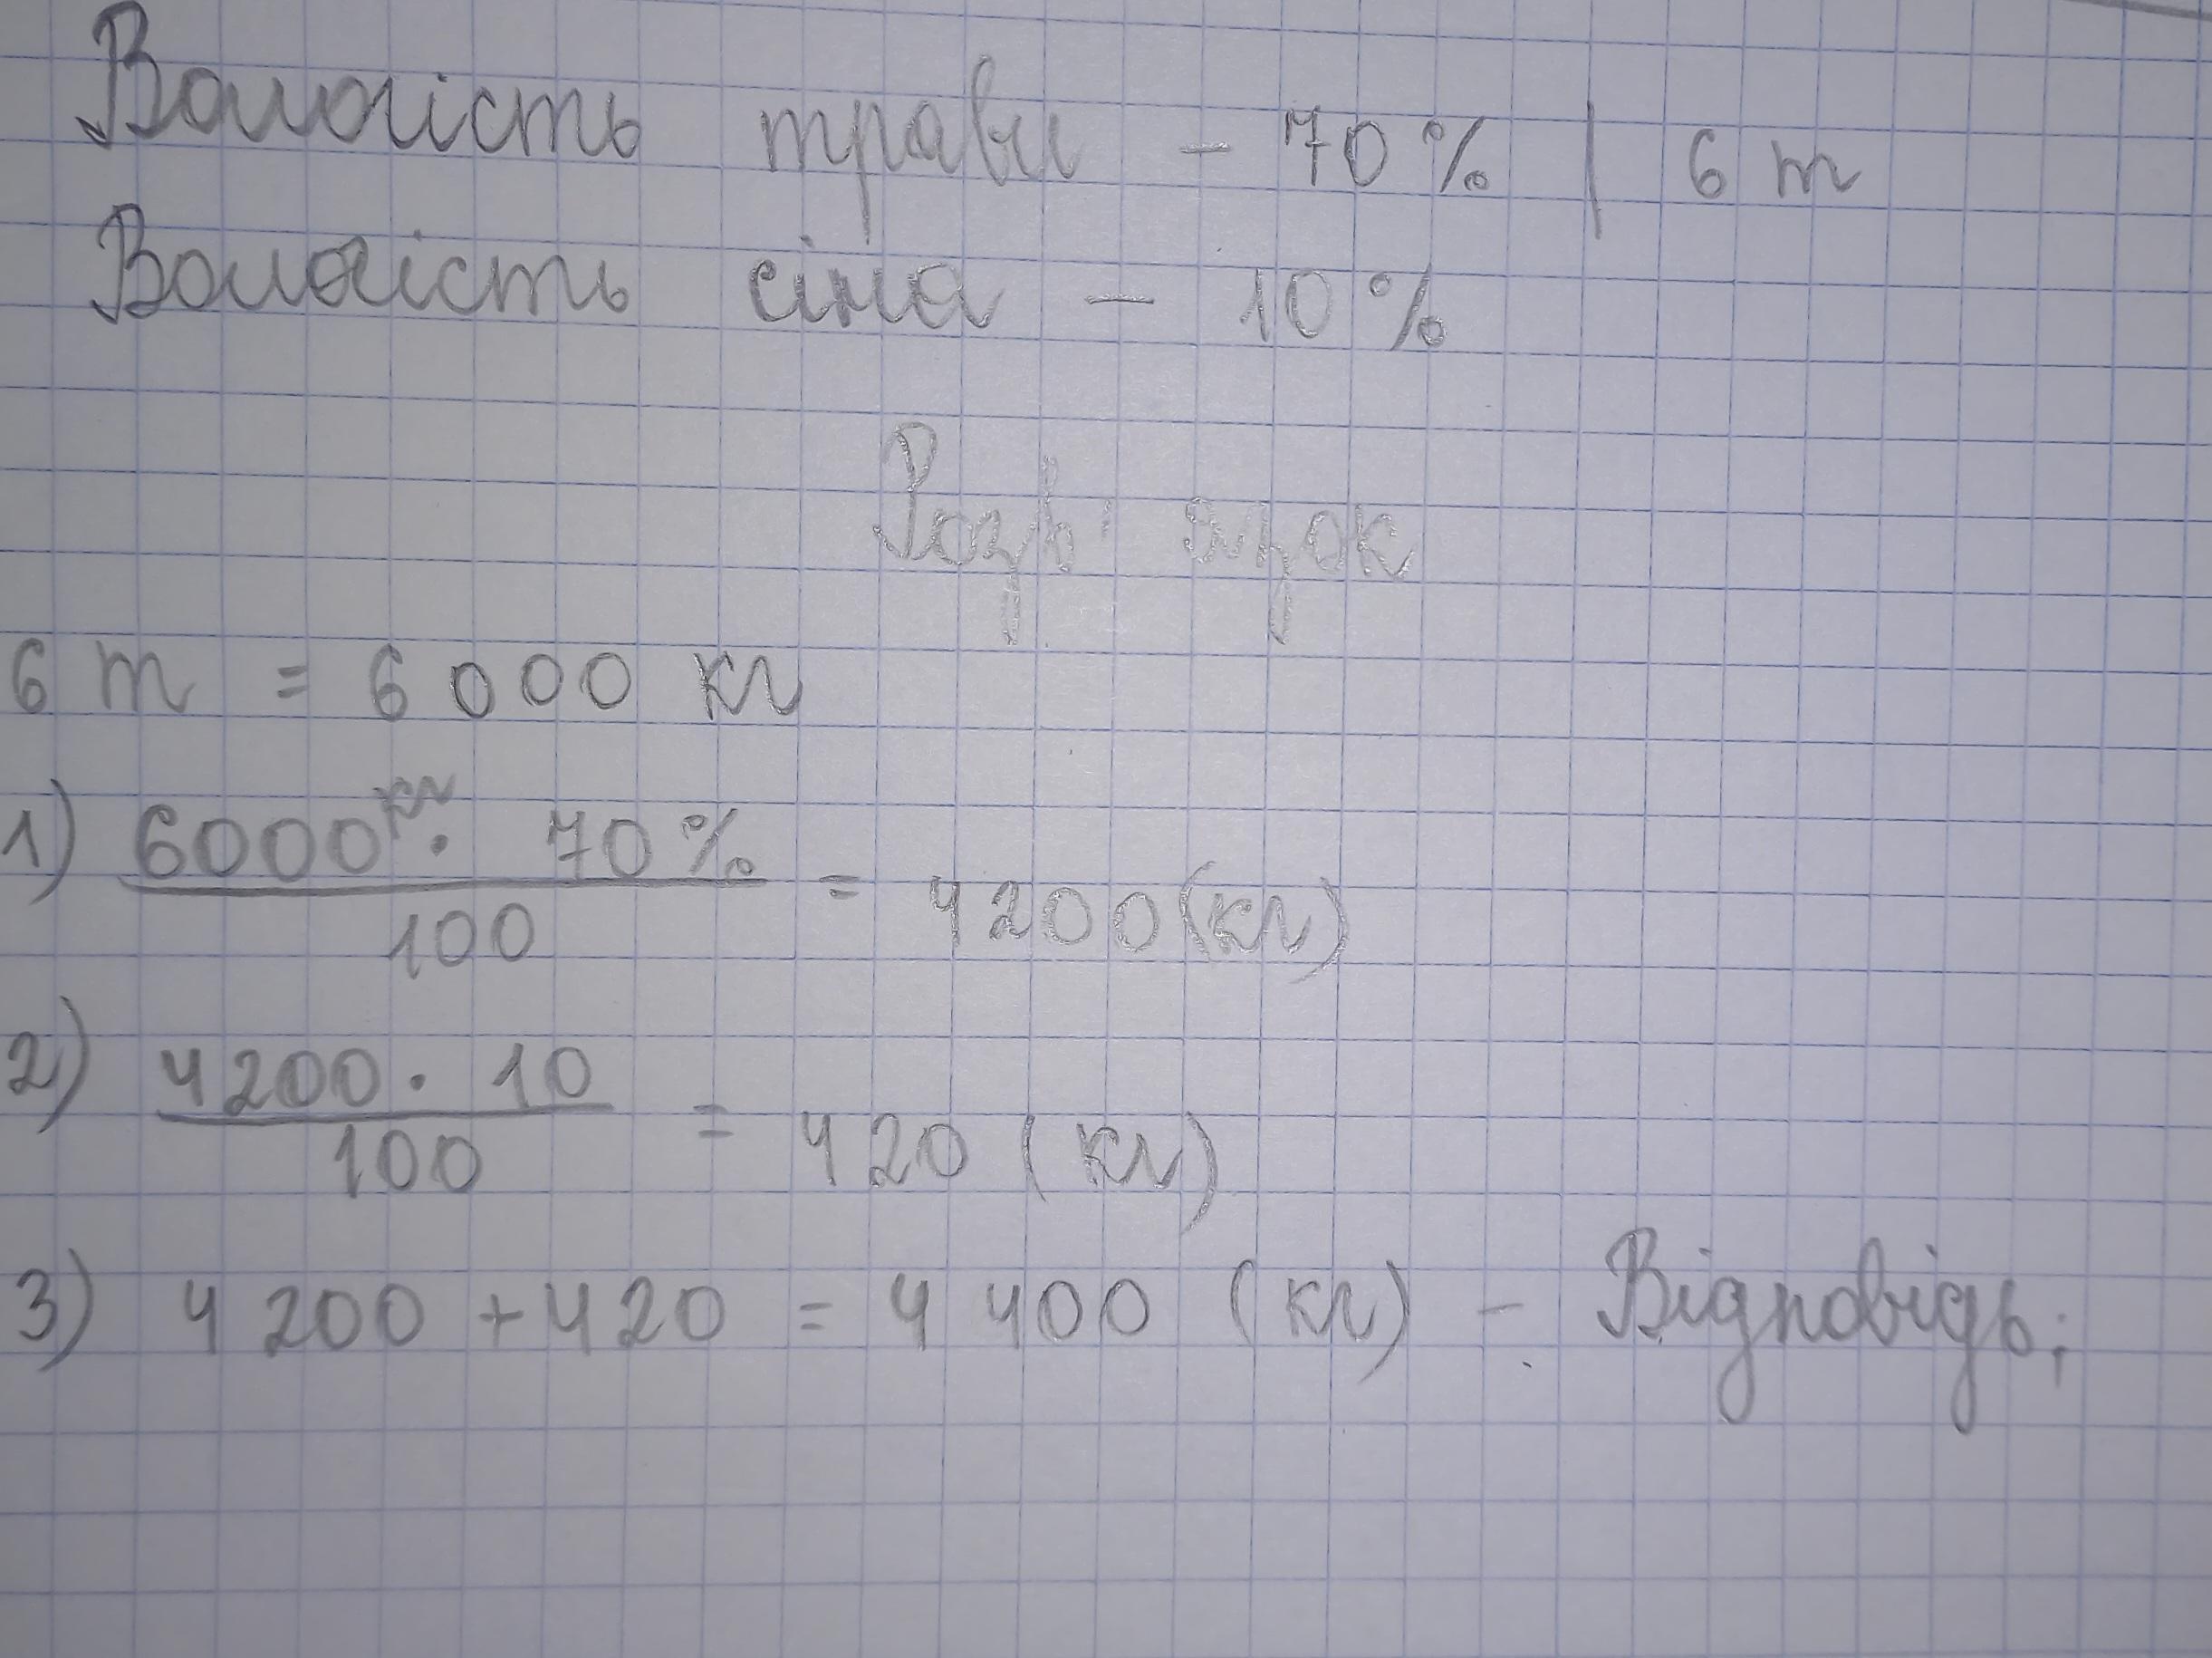 Вологість трави - 70% | 6 т
Вологість сіна - 10%
Розв'язок
6 т = 6000 кг
1) 6000кг · 70% / 100 = 4200(кг)
2) 4200 · 10 / 100 = 420 (кг)
3) 4200 + 420 = 4400 (кг) - Відповідь;